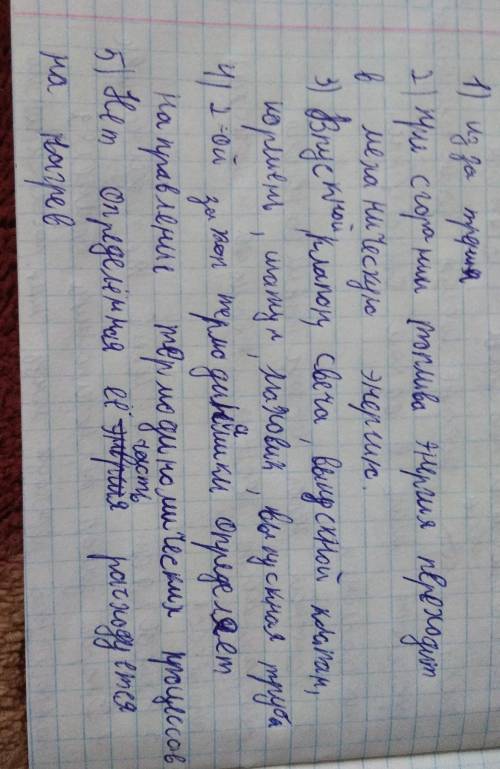 1) из за трения
2) при сгорании топлива энергия переходит
в механическую энергию.
3) Впускной клапон, свеча, выпускной клапан,
поршень, шатун, маховик, выпускная труба
4) 2-ой закон термодинамики определяет
направление термодиномических процессов
5) Нет определённая её часть расходуется
на нагрев